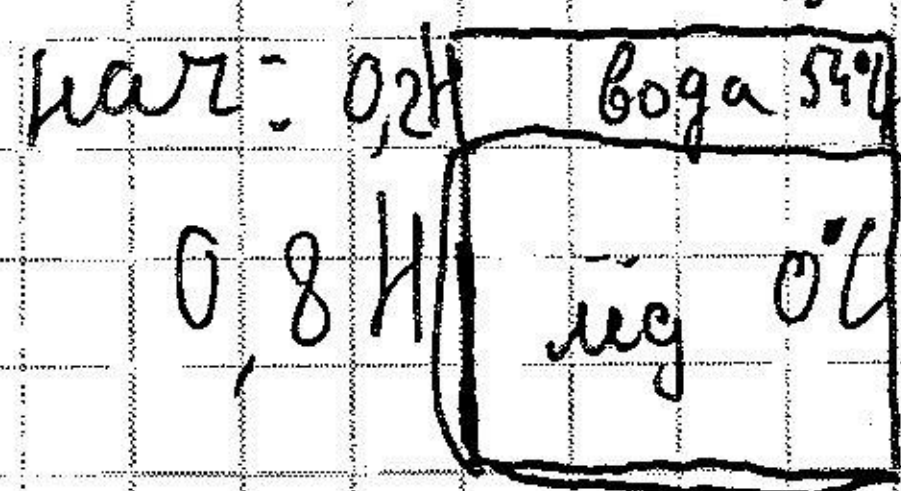 нач: 0,2H вода 54°C
0,8H лёд 0°C